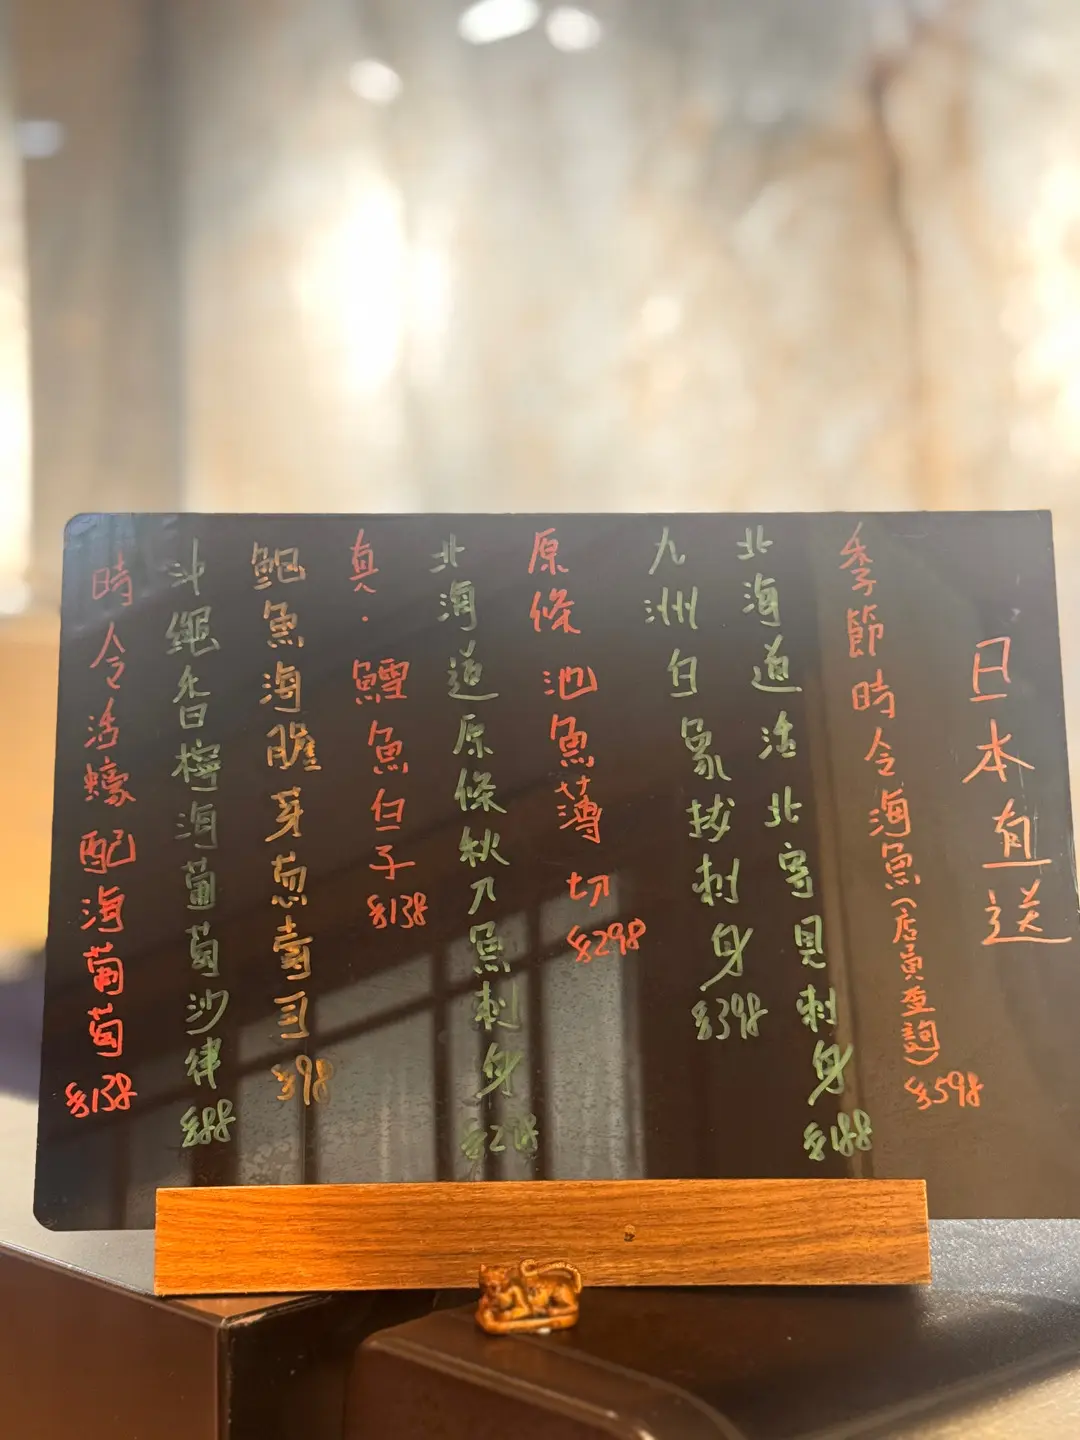 日本直送
季節時令海魚(店員查詢) $598
北海道活北寄貝刺身 $188
九洲白象拔刺身 $398
原條池魚薄切 $298
北海道原條秋刀魚刺身
真.鱈魚白子 $138
鮑魚海膽芽葱壽司 $98
香檸海葡萄沙律 $88
時令活蠔配海葡萄 $138